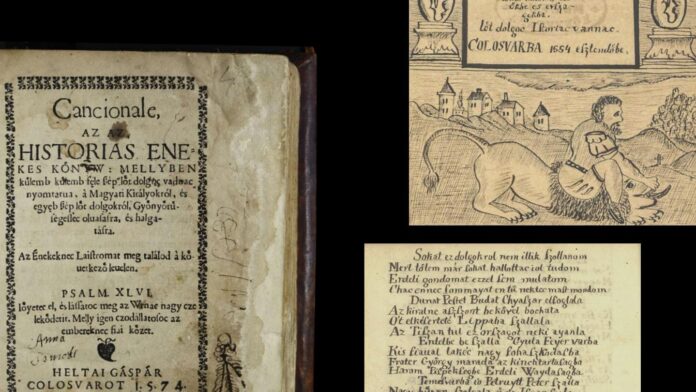 Cancionale,
AZ AZ
HISTORIAS ENE-
KES KÖNYW: MELLYBEN
külemb külemb féle ßép lőt dolgoc vadnac
nyomtatua, à Magyari Királyokról, és
egyéb ßép lőt dolgokról, Gyönyőrű-
ségesſec oluasásra, és halga-
tásra.
Az Énekeknec Laistromat meg találod à kö-
uetkező leuelen.
PSALM. XLVI.
Iőyetec el, és lássatoc meg az Wrnac nagy czele-
lekedetit. Melly igen czodállatosoc az
embereknec fiai közet.
HELTAI GÁSPÁR
COLOSVAROT 1.5 7 4.
Anna
lőt dolgoc Iſtoriac vannac.
COLOSVARBA 1554 esztendőbe.
Sokat ez dolgokrol nem illik ſzollanom
Mert től​em már ſokat hallottac iol tudom
Erdeli gondomat ezzel ſem mulatom
Chac ennec ſommayat en tü nektec maſt mondom
Dunat Peſtet Budat Chyaſzar elfoglala
Az kiralne aſſzont bekevel bochata
Öt elkeſerteté Lippaba ſzallala
Az Tiſzan tul ez orſzagot neki ayanla
Erdelbe be ſzalla Gyula Feyer varba
Kis fiaual lakéc nagy ſohaſzkodasba
Frater György marada kinchtartaſagba
Harom Piſpökſegbe Erdeli Waydaſagba
Temesvarba is Petruyt Peter ſzalla